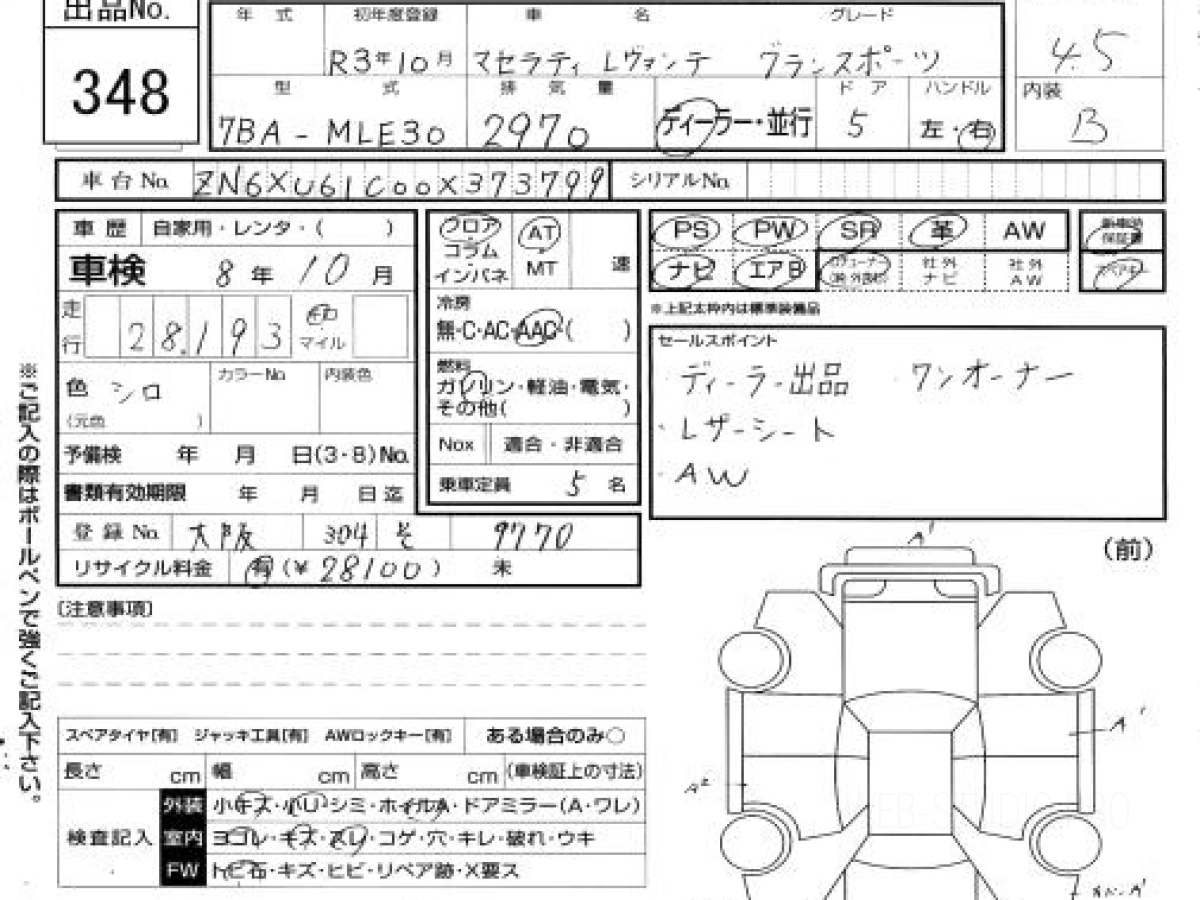 出品No.
348
年 式 初年度登録 車 名 グレード
R3年10月 マセラティ レヴァンテ グランスポーツ
4.5
型 式 排 気 量 ド ア ハンドル 内装
7BA-MLE30 2970 ディーラー・並行 5 左・右 B
車台No. ZN6XU61C00X373799 シリアルNo.
車歴 自家用・レンタ・( )
車検 8年10月
走行 28.193 マイル
色 シロ カラーNo. 内装色
(元色 )
予備検 年 月 日(3・8)No.
書類有効期限 年 月 日迄
登録No. 大阪 304 そ 9770
リサイクル料金 有(¥28100) 未
フロア
コラム
インパネ
AT
MT
速
冷房
無・C・AC・AAC( )
燃料
ガソリン・軽油・電気・
その他( )
Nox 適合・非適合
乗車定員 5名
PS PW SR 革 AW 保証書
ナビ エアB 社外ナビ 社外AW スペアキー
※上記太枠内は標準装備品
セールスポイント
・ディーラー出品 ワンオーナー
・レザーシート
・AW
※ご記入の際はボールペンで強くご記入下さい。
〔注意事項〕
(前)
A'
A'
A2
スペアタイヤ[有] ジャッキ工具[有] AWロックキー[有] ある場合のみ○
長さ cm 幅 cm 高さ cm (車検証上の寸法)
検査記入
外装 小キズ・小U・シミ・ホイルA・ドアミラー(A・ワレ)
室内 ヨゴレ・キズ・スレ・コゲ・穴・キレ・破れ・ウキ
FW トビ石・キズ・ヒビ・リペア跡・X要ス